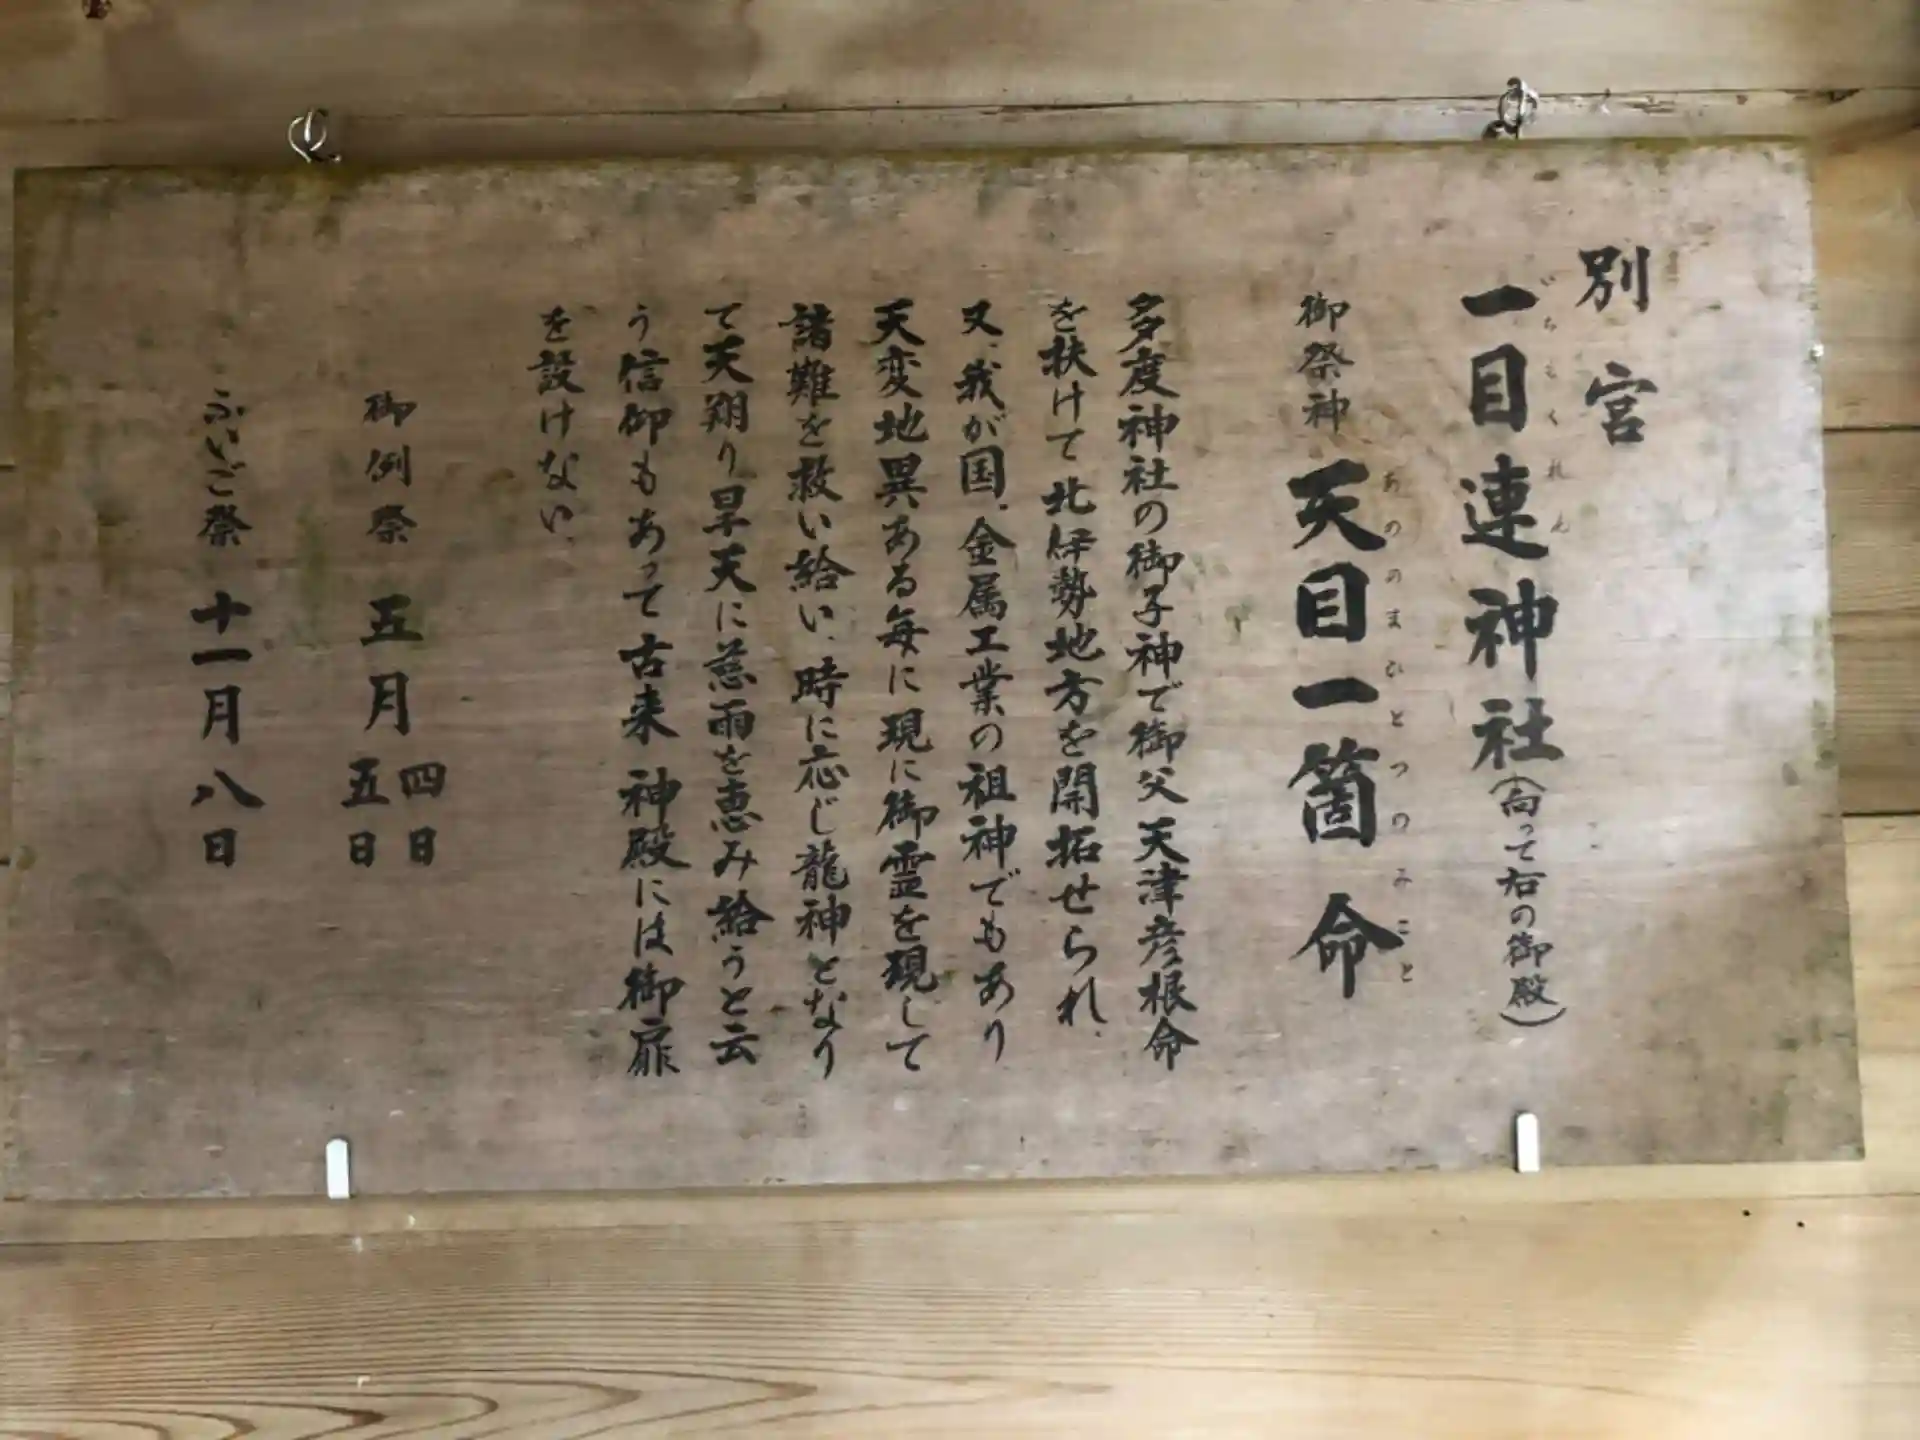 別宮
一目連神社(向って右の御殿)
いちもくれん
御祭神 天目一箇命
あめのまひとつのみこと
多度神社の御子神で御父天津彦根命
を扶けて北伊勢地方を開拓せられ、
又、我が国、金属工業の祖神でもあり
天変地異ある毎に現に御霊を現して
諸難を救い給い、時に応じ龍神となり
て天翔り旱天に慈雨を恵み給うと云
う信仰もあって古来神殿には御扉
を設けない、
御例祭 五月 四日
五日
ふいご祭 十一月八日